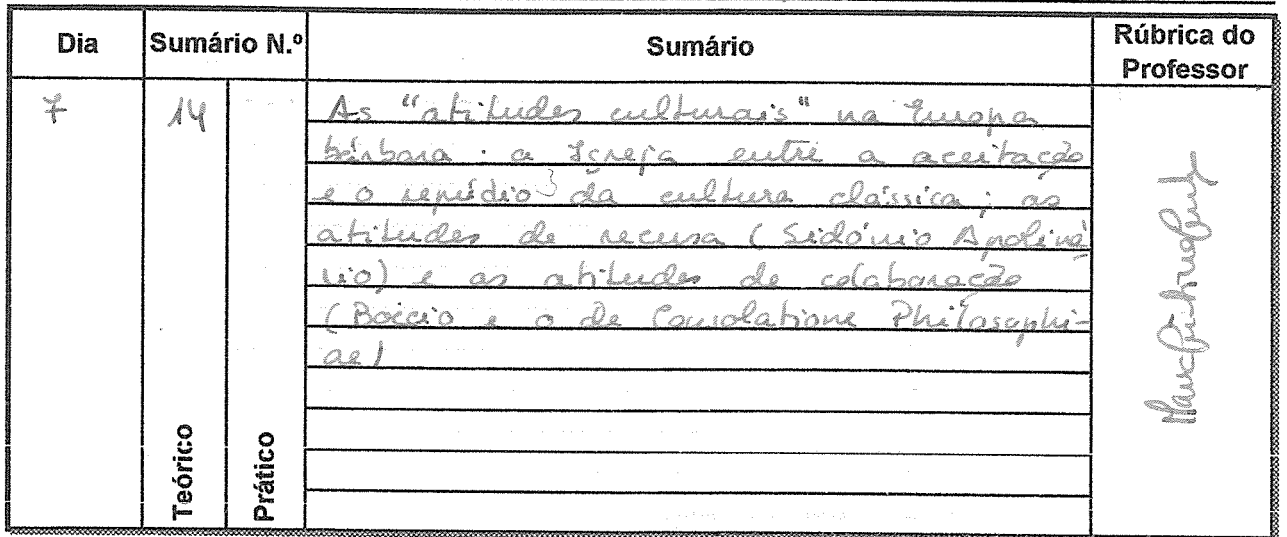 Dia Sumário N.º Sumário Rúbrica do Professor
7 14
As "atitudes culturais" na Europa
bárbara: a Igreja entre a aceitação
e o repúdio da cultura clássica; as
atitudes de recusa (Sidónio Apoliná
rio) e as atitudes de colaboração
(Boécio e o de Consolatione Philosophi-
ae)
Teórico
Prático